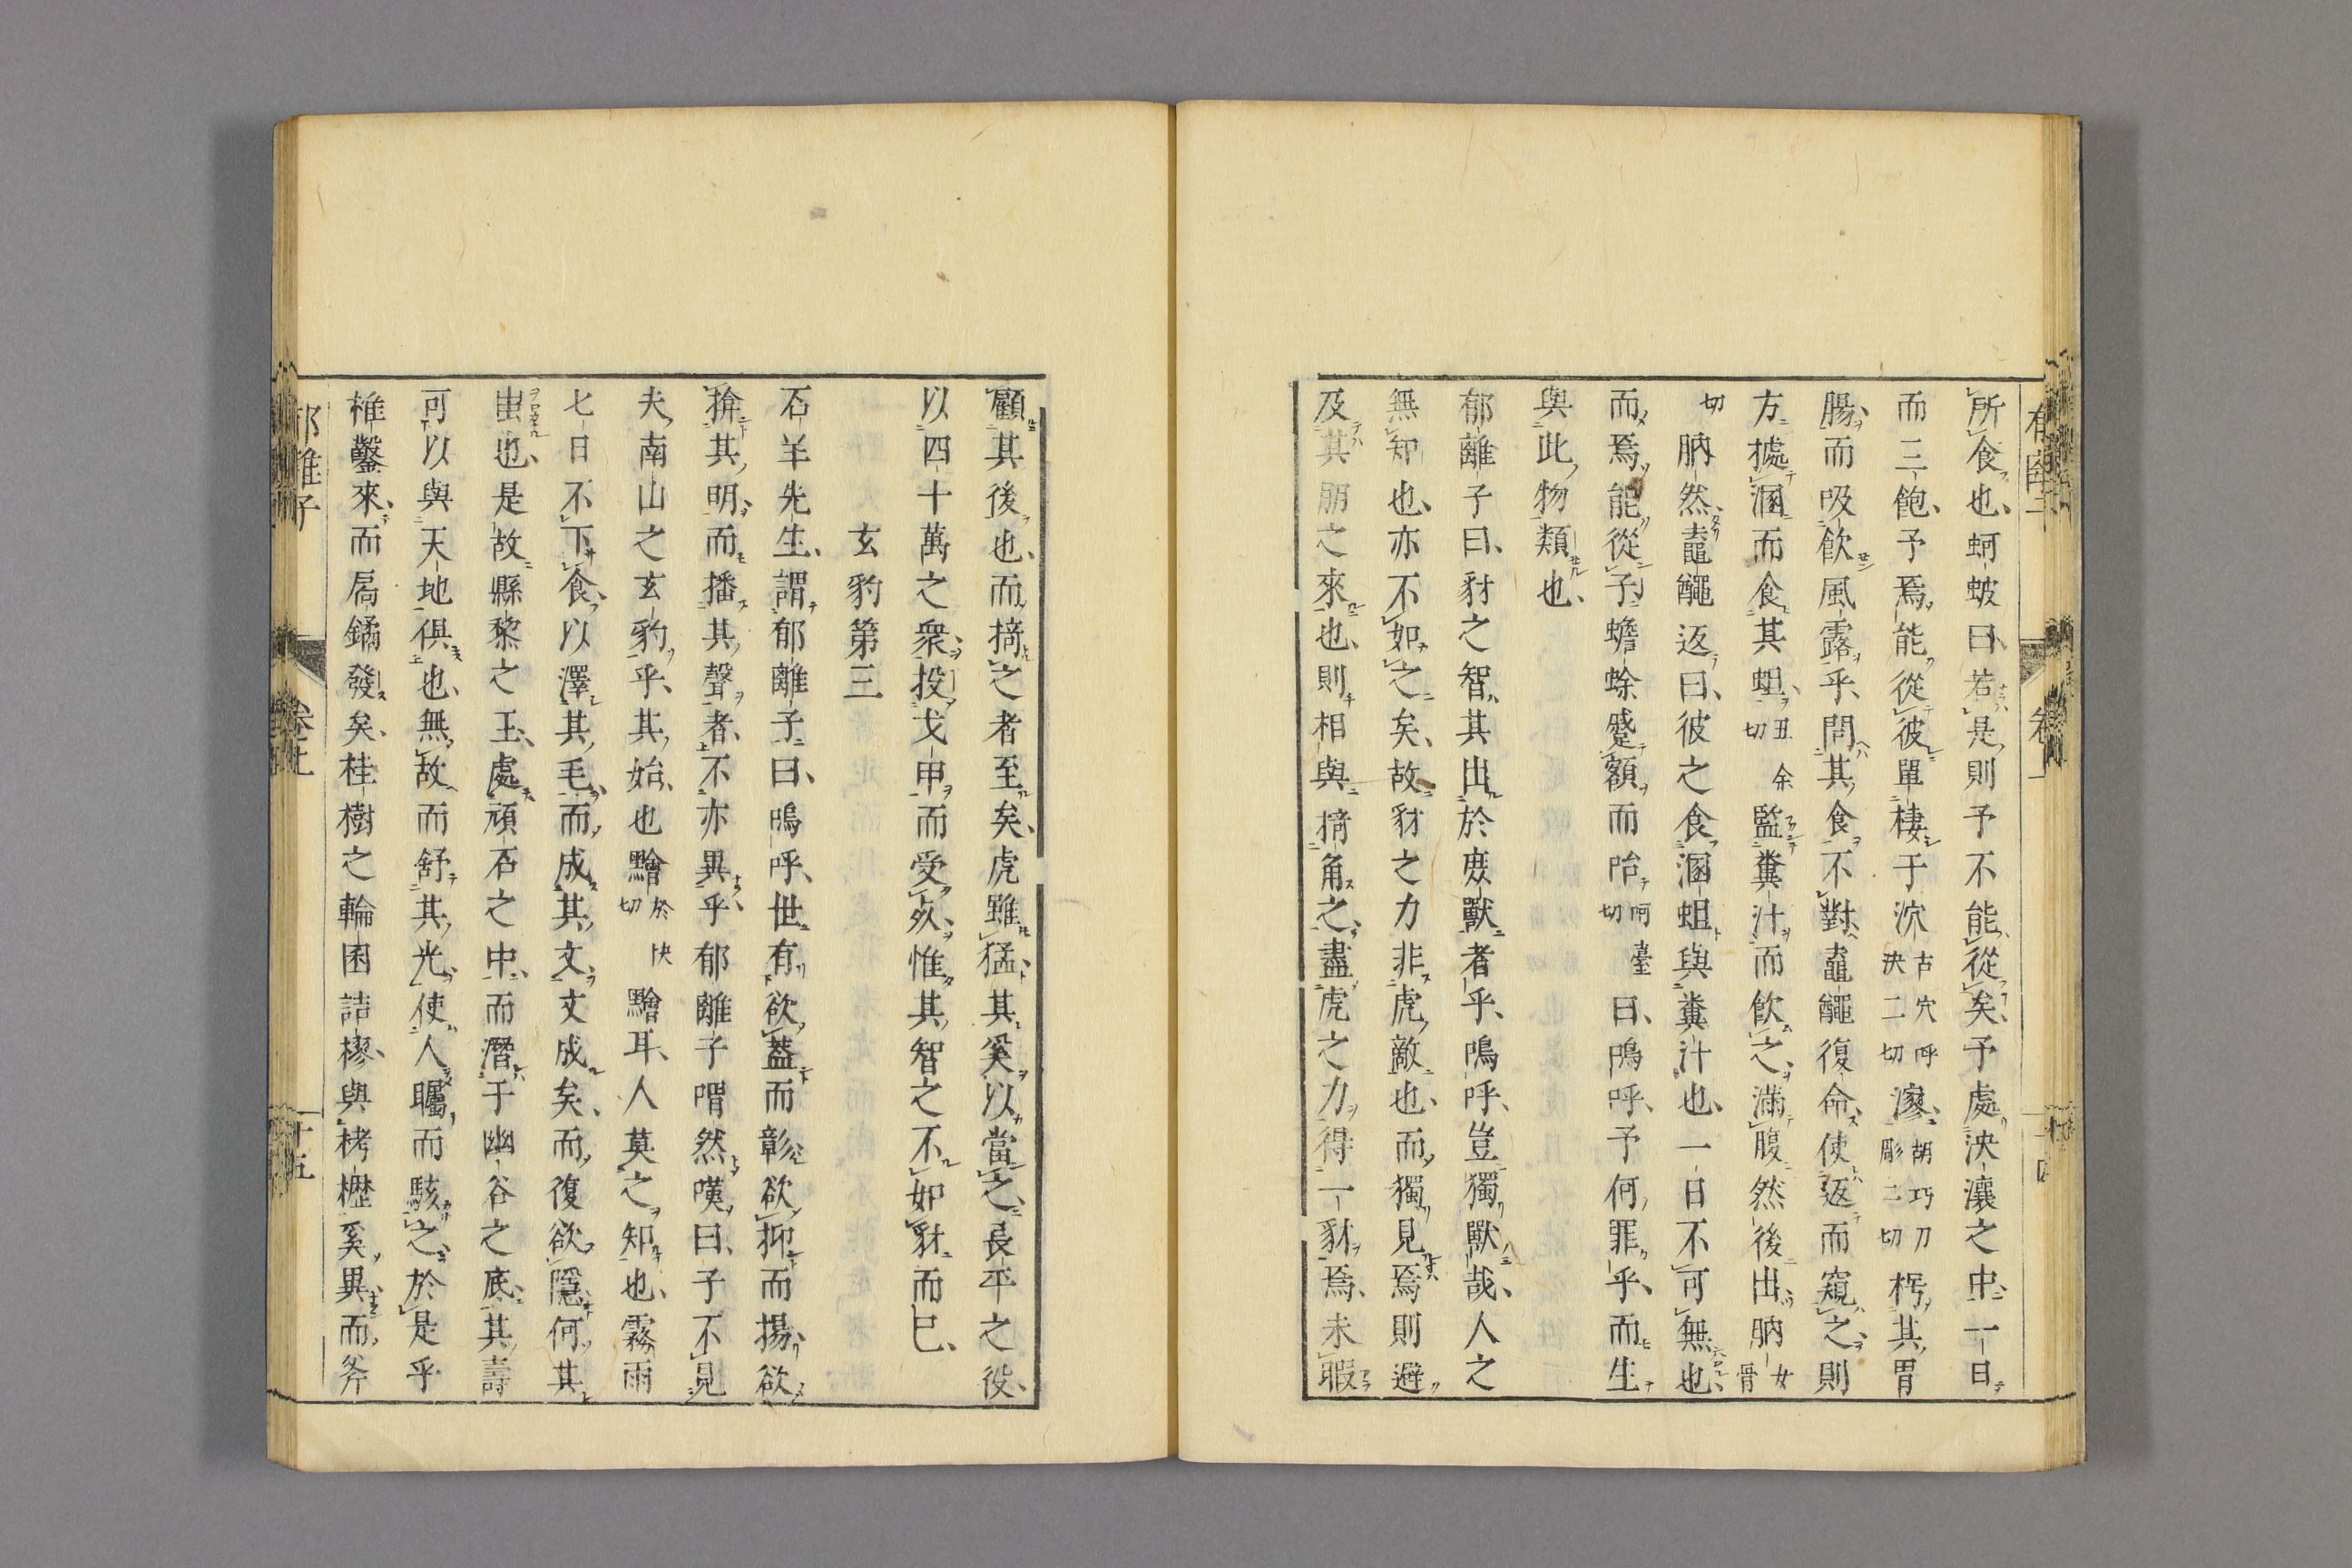 所食也蚵蚾曰若是則予不能從矣予處泱瀼之中一日
而三飽予焉能從彼單棲于泬古穴呼決二切漻胡巧刀彫二切枵其胃
腸而吸飲風露乎問其食不對鼀𪓰復命使返而窺之則
方據溷而食其蛆余丑切監糞汁而飲之滿腹然後出肭女骨
切肭然鼀𪓰返曰彼之食溷蛆與糞汁也一日不可無也
而焉能從子蟾蜍蹙額而咍呵臺切曰嗚呼予何罪乎而生
與此物類也
郁離子曰豺之智其出於庶獸者乎嗚呼豈獨獸哉人之
無知也亦不如之矣故豺之力非虎敵也而獨見焉則避
及其朋之來也則相與掎角之盡虎之力得一豺焉未暇
顧其後也而掎之者至矣虎雖猛其奚以當之長平之役
以四十萬之衆投戈甲而受死惟其智之不如豺而已
玄豹第三
石羊先生謂郁離子曰嗚呼世有欲蓋而彰欲抑而揚欲
揜其明而播其聲者不亦異乎郁離子喟然嘆曰子不見
夫南山之玄豹乎其始也黵於怏切黵耳人莫之知也霧雨
七日不下食以澤其毛而成其文文成矣而復欲隱何其
蚩也是故縣黎之玉處頑石之中而潛于幽谷之底其壽
可以與天地俱也無故而舒其光使人矚而駭之於是乎
椎鑿來而扃鐍發矣桂樹之輪囷詰樛與栲櫪奚異而斧
郁離子
卷上
十五